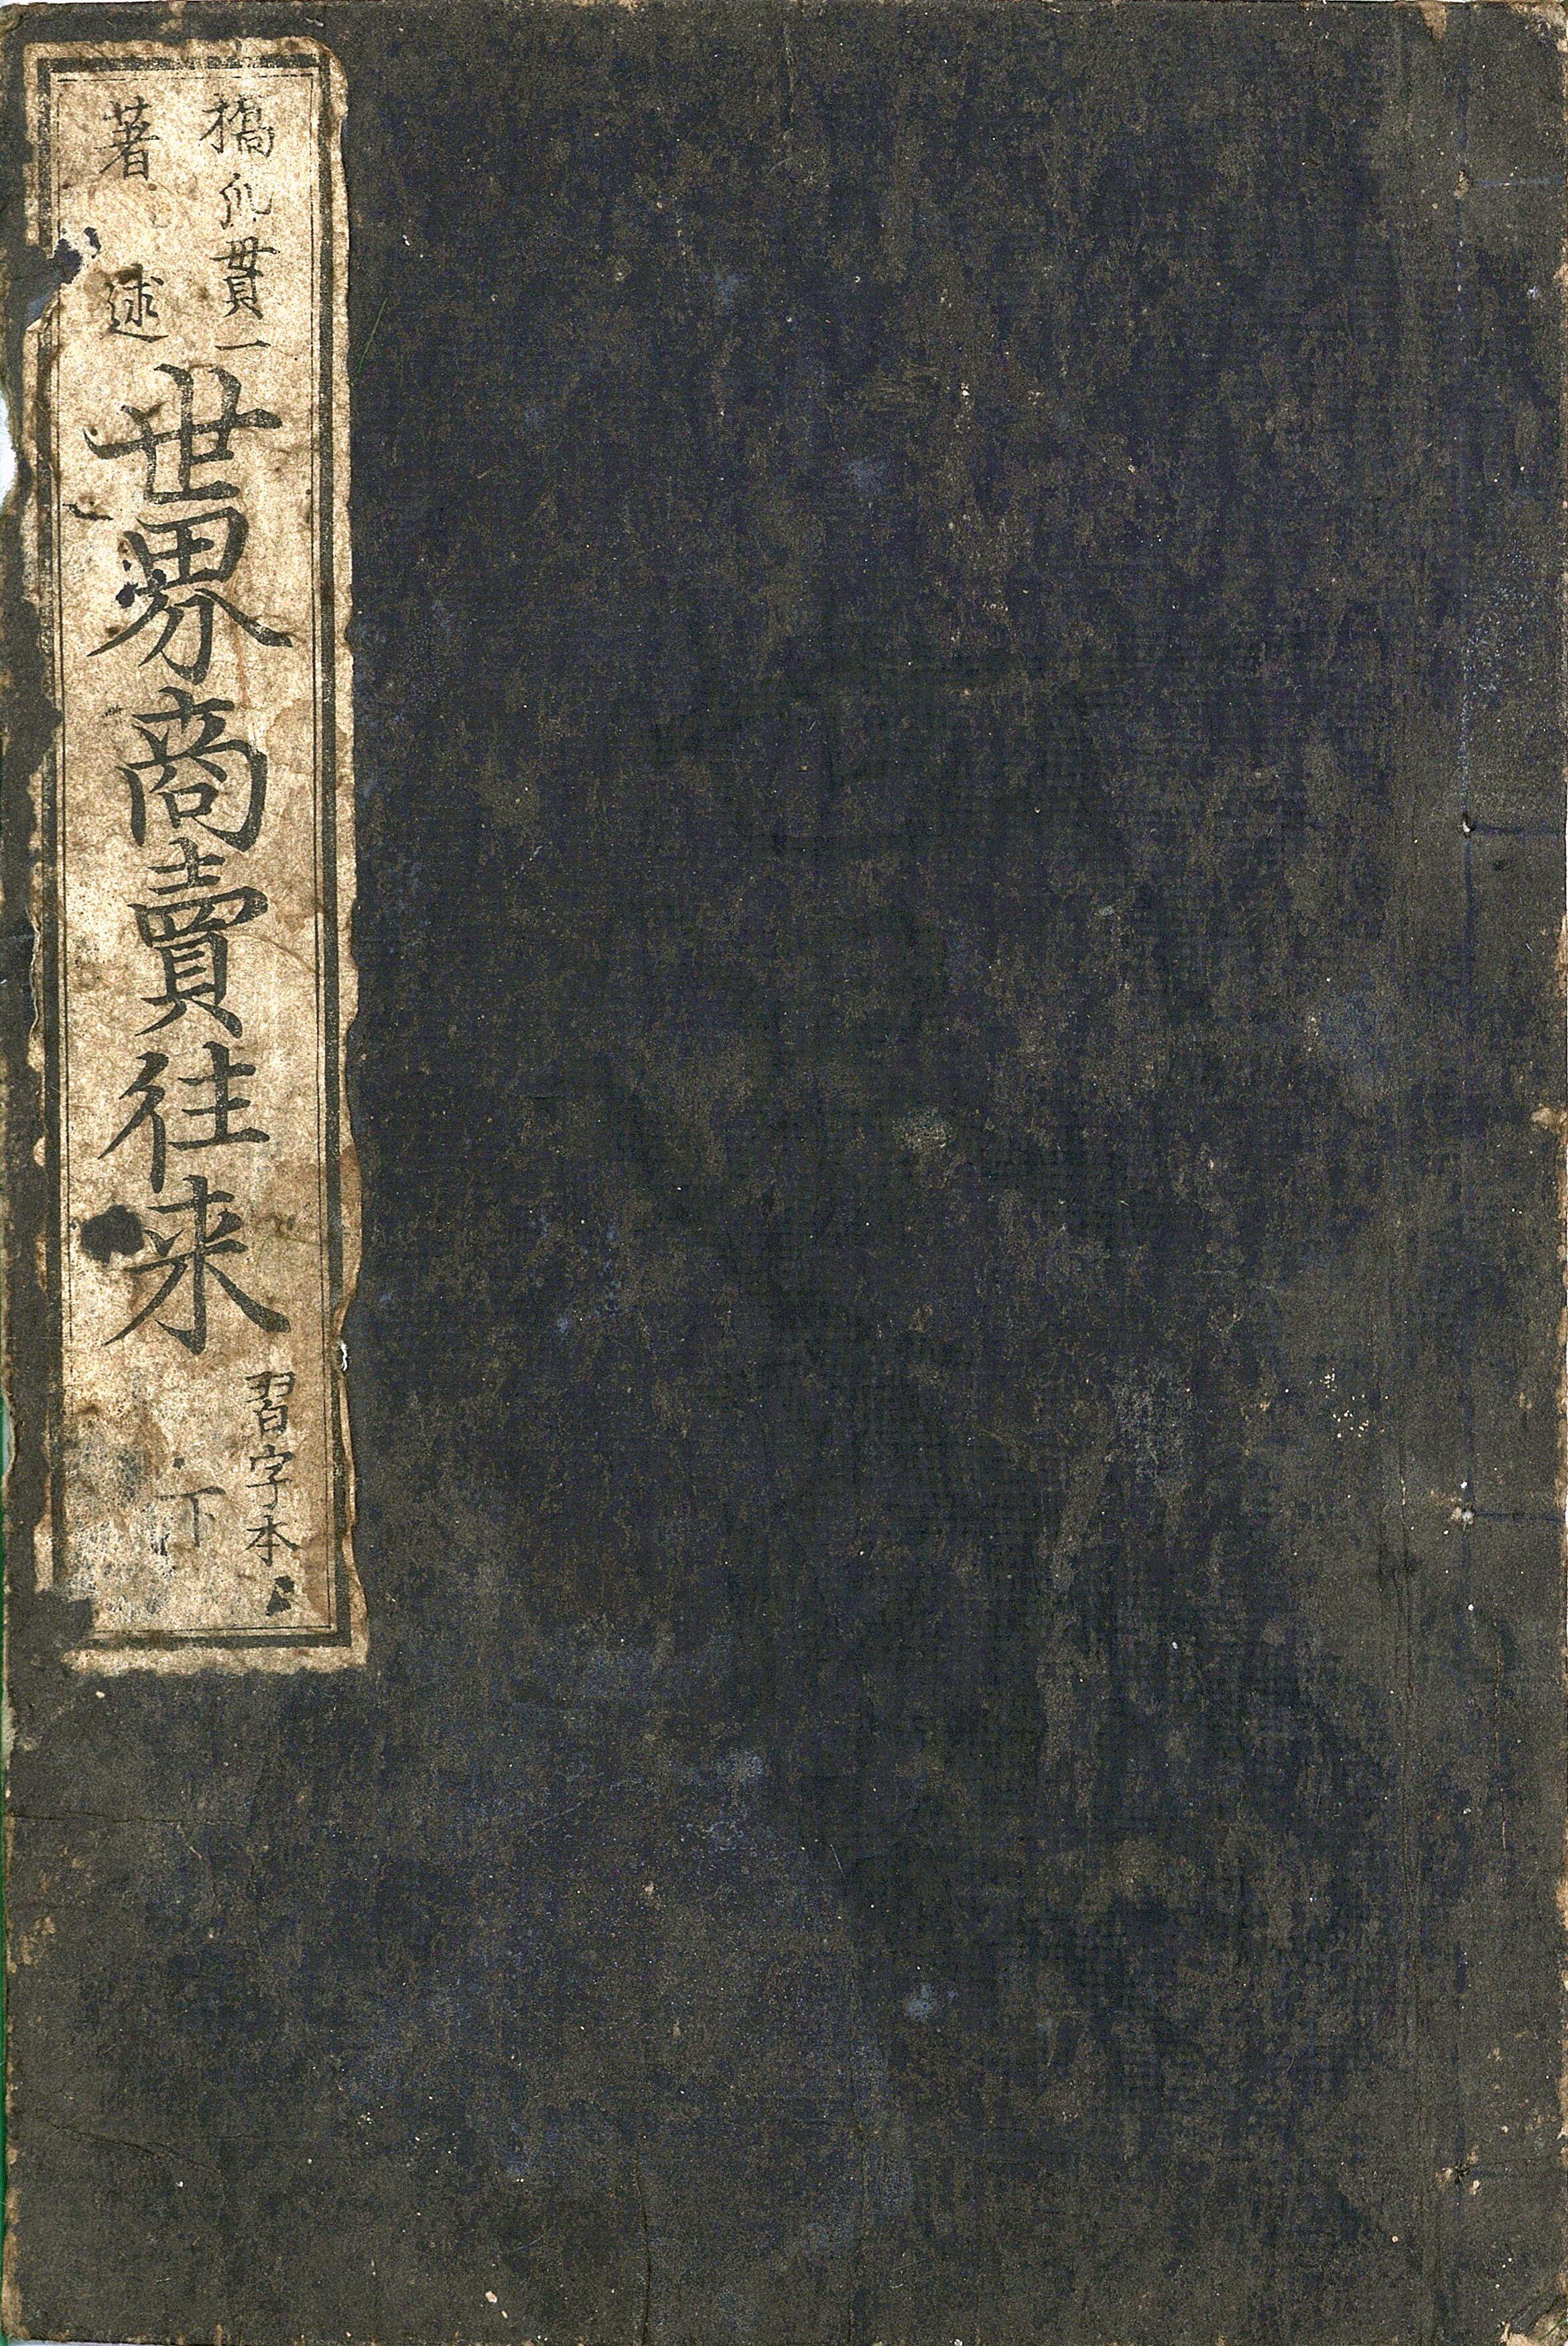 橋爪貫一
著述
世界商賣往来
習字本
下